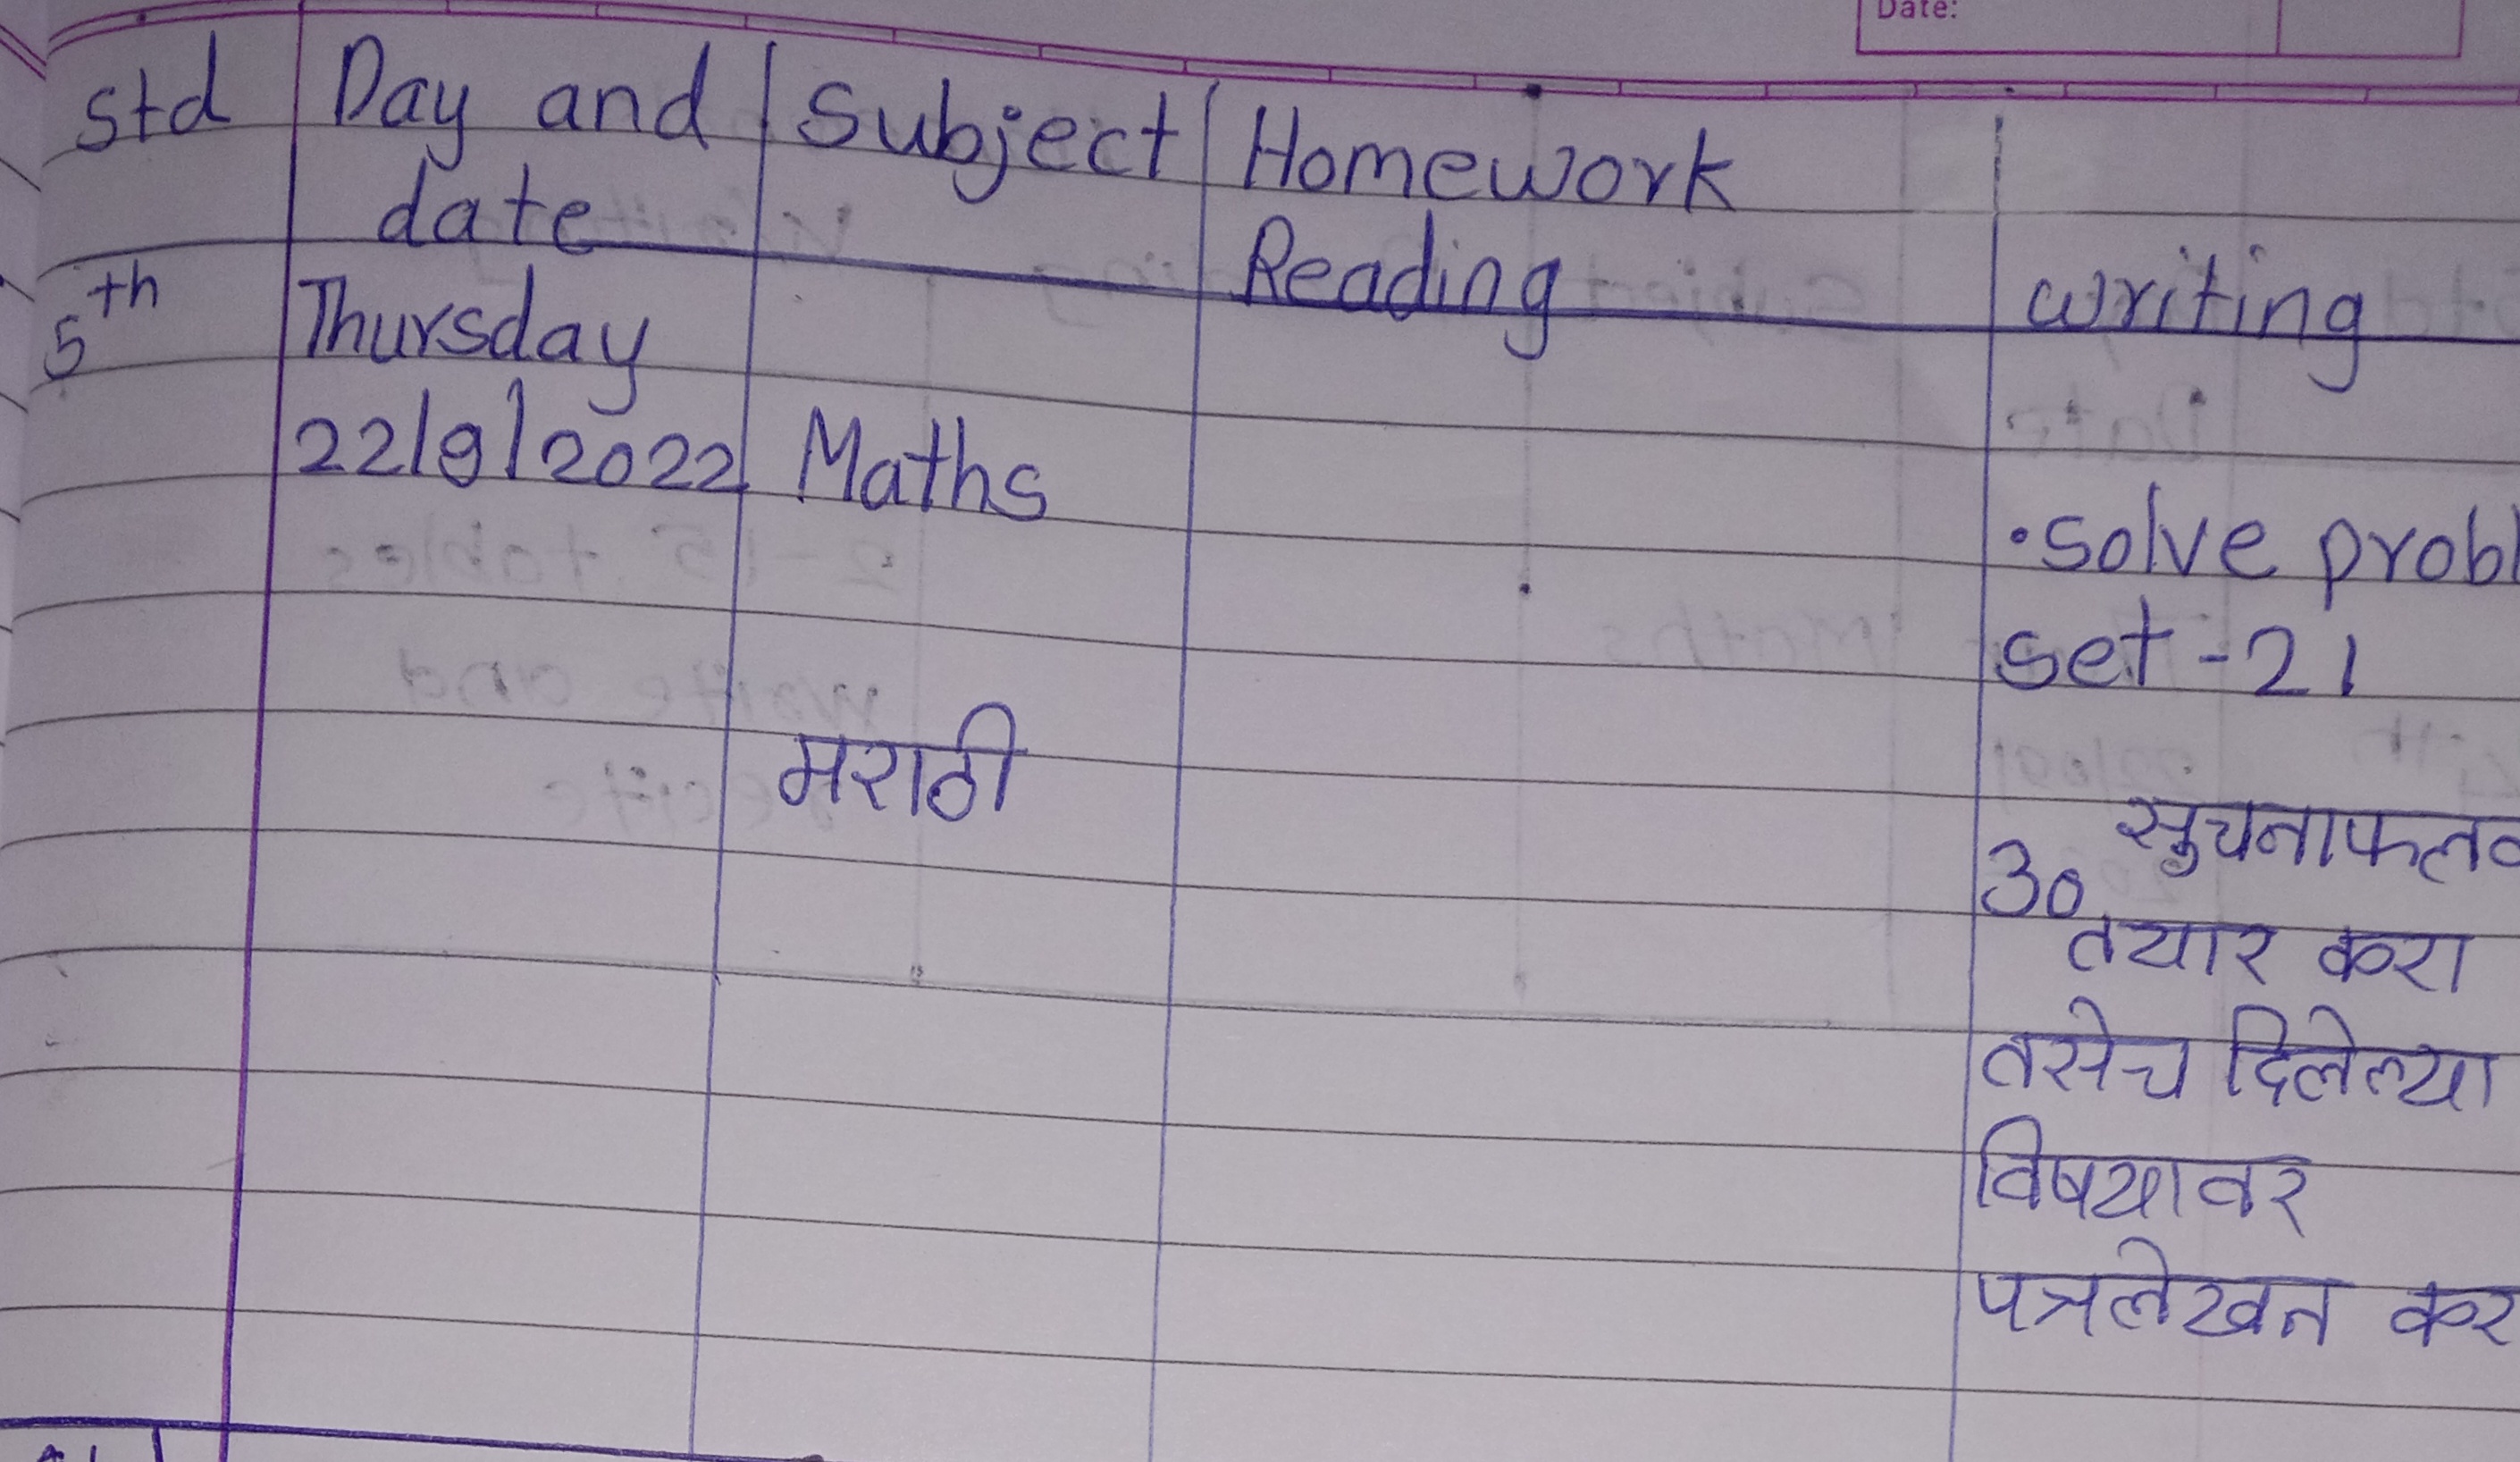 Date:
std Day and Subject Homework
date Reading writing
5th Thursday
22/9/2022 Maths
• solve
set - 21
मराठी
30
तयार करा
तसेच दिलेल्या
विषयावर
पत्रलेखन